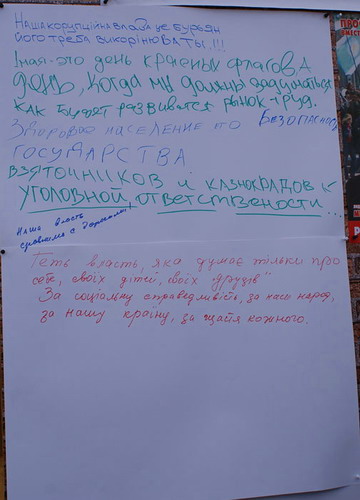 Наша корупційна влада це бурьян
його треба викоріню ВАТЫ.!!!
1мая-это день красных флагов А
ДЕНЬ, КОГДА МЫ ДОЛЖНЫ ЗАДУМАТЬСЯ
КАК БУДЕТ РАЗВИВАТСЯ РЫНОК-ТРУД.
Здоровое население это БЕЗОПАСНОС
ГОСУДАРСТВА
ВЗЯТОЧНИКОВ И КАЗНОКРАДОВ К
УГОЛОВНОЙ, ОТВЕТСТВЕНОСТИ...
Наша власть
сравнима с
Геть власть, яка думає тільки про
себе, своїх дітей, своїх "друзів"
За соціальну справедливість, за наш народ,
за нашу країну, за щастя кожного.